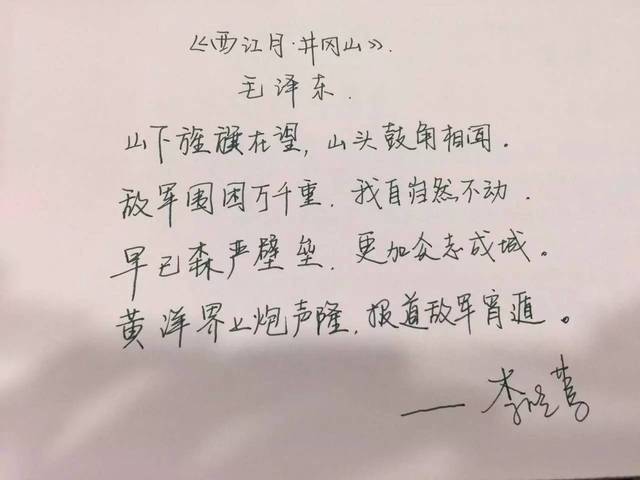 《西江月·井冈山》.
毛泽东.
山下旌旗在望,山头鼓角相闻。
敌军围困万千重,我自岿然不动.
早已森严壁垒,更加众志成城。
黄洋界上炮声隆,报道敌军宵遁。
——李